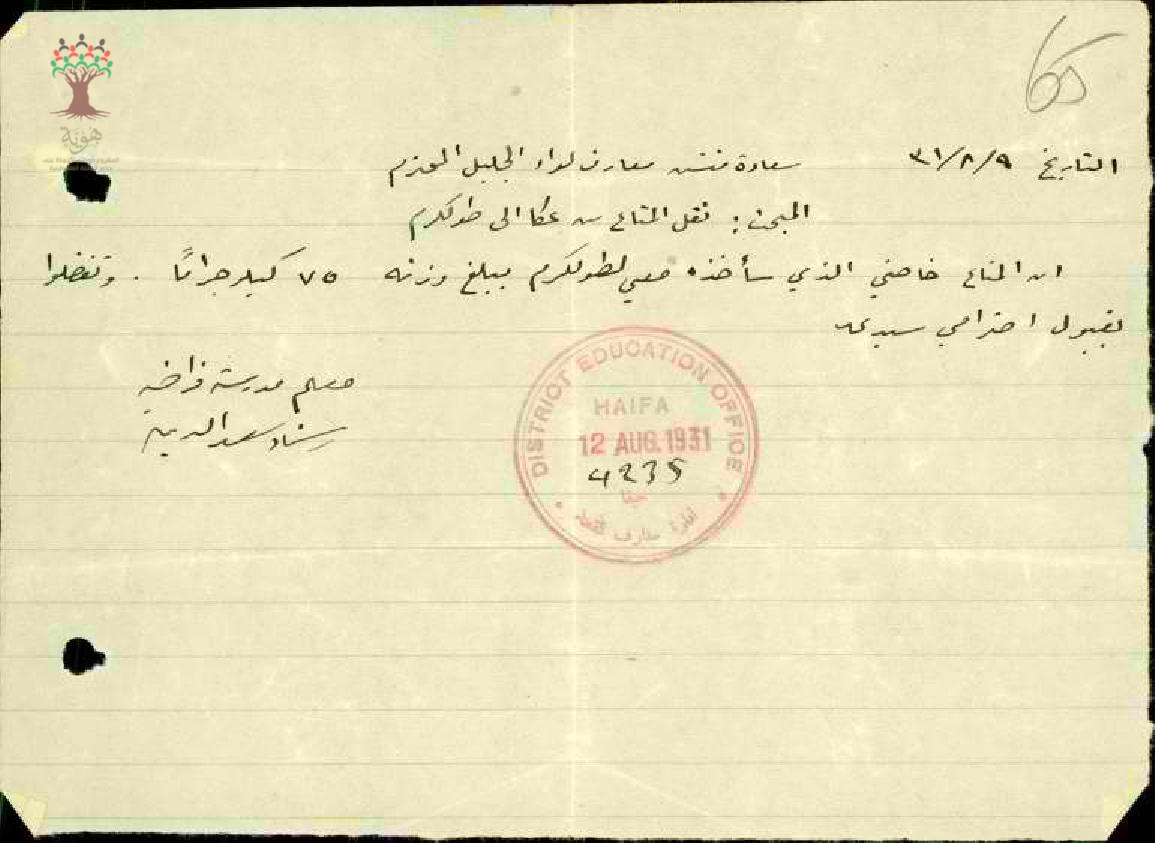 65
هوية
التاريخ ٣١/٨/٩ سعادة مفتش معارف لواء الجليل المحترم
المبحث : نقل المتاع من عكا الى طولكرم
ان المتاع خاصتي الذي سأخذه معي لطولكرم يبلغ وزنه ٧٥ كيلوجرامًا . وتفضلوا
بقبول احترامي سيدي
معلم مدرسة فراضيه
رشاد سعد الدين
DISTRICT EDUCATION OFFICE
HAIFA
12 AUG. 1931
4235
حيفا
ادارة معارف